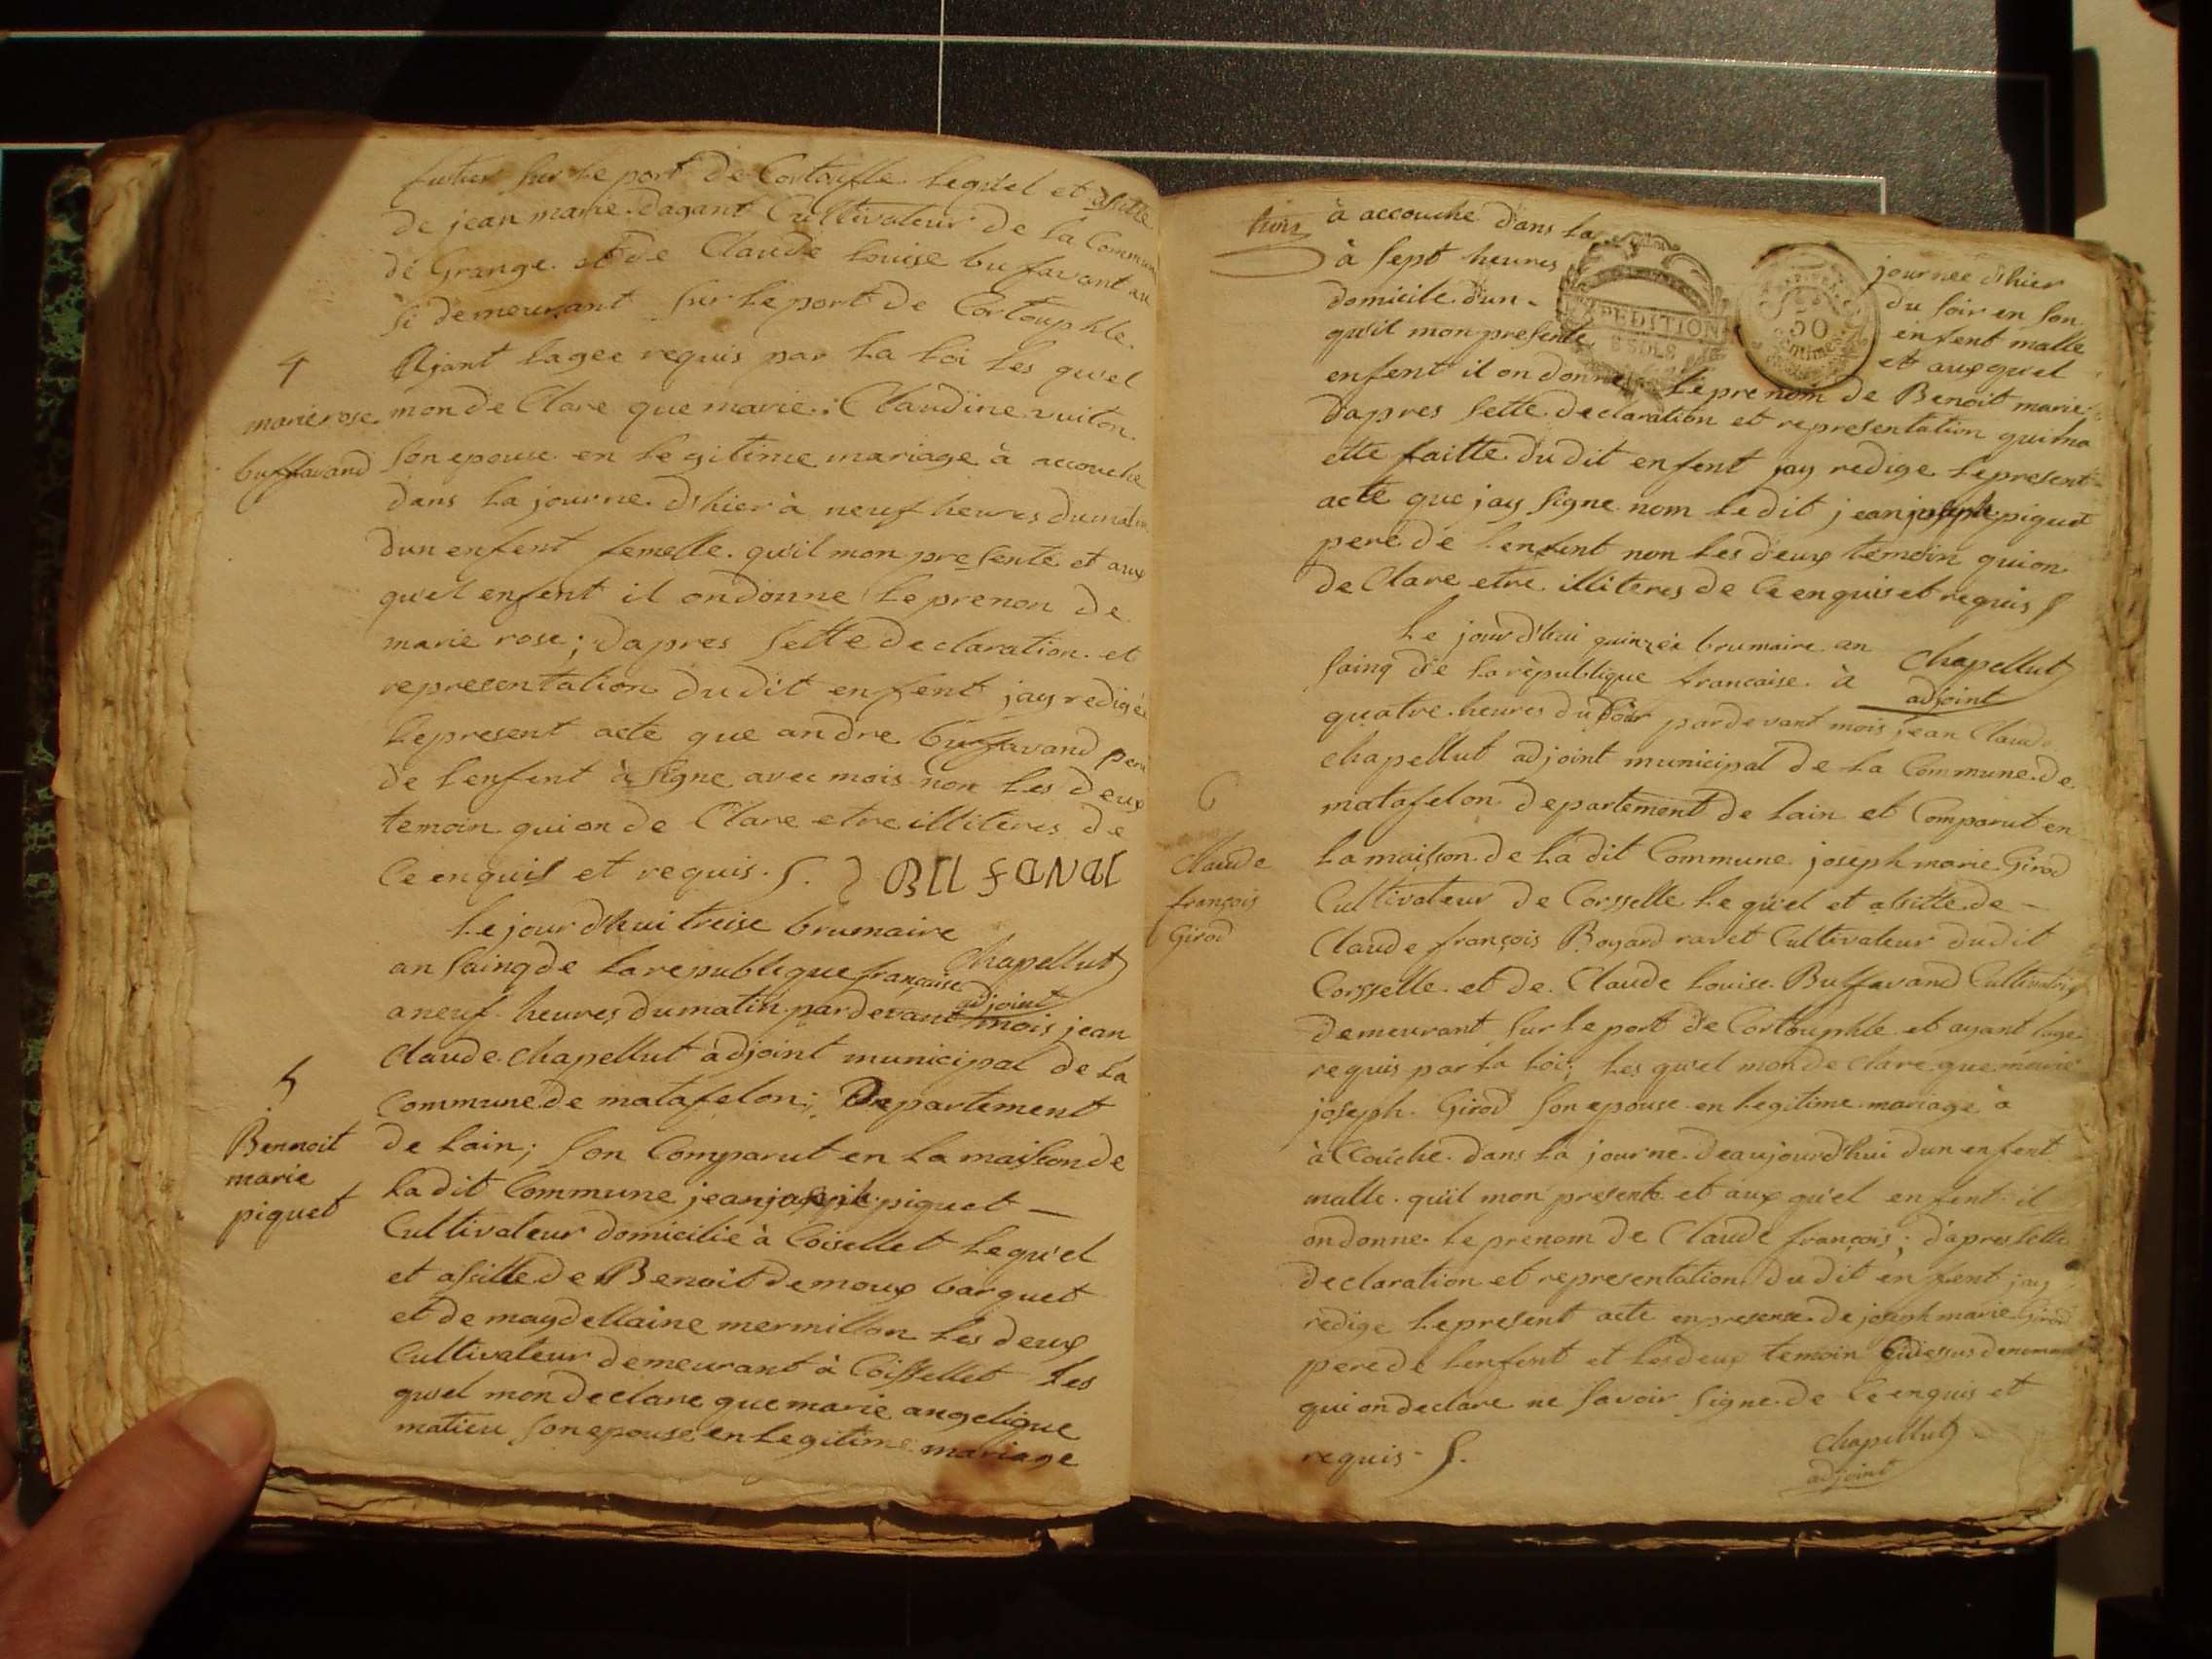 sur le port de Cortoufle lequ'el et assitte
de jean marie dagant Cultivateur de la Commun
de Grange. et de Claude Louise bufavant au
si demeurant Sur le port de Cortouphle.
4
Ajant lagee requis par la loi les qu'el
marie rose
mon de Clare que marie. Claudine vuiton
buffavand
Son epouse en legitime mariage à accouche
dans la journe d'hier à neuf heures dumatin
dun enfent femelle. qu'il mon presente et aux
qu'el enfent il on donne le prenon de
marie rose; dapres Sette declaration et
representation du dit enfent jay redigée
le present acte que andre buffavand pere
de lenfent à Signe avec mois non les deux
temoin qui on de Clare etre illiteres de
Ce enquis et requis. S.
Le jour d'hui treise brumaire
Chapellut
adjoint
an Sainq de la republique francaise
a neuf heures du matin pardevant mois jean
Claude Chapellut adjoint municipal de la
5
Commune de matafelon; Departement
Bennoit
marie
piquet
de lain; Son Comparut en la maison de
la dit Commune jean joseph piquet —
Cultivateur domicilié à Coisellet lequ'el
et assitte de Benoit demoux barquet
et de magdellaine mermillon les deux
Cultivateur demeurant à Coissellet les
qu'el mon declare que marie angelique
matieu Son epouse en legitime mariage
à accouche dans la journee d'hier
à Sept heures du Soir en Son
domicile d'un - enfent malle
qu'il mon presente et aux qu'el
EXPEDITION
50
Centimes
enfent il on donne le prenom de Benoit marie
dapres Sette declaration et representation qui ma
ette faitte du dit enfent jay redige le present
acte que jay Signe nom le dit jean joseph piquet
pere de lenfent non les deux temoin qui on
de Clare etre illiteres de Ce enquis et requis S
Chapellut
adjoint
Le jour d'hui quinzée brumaire an
Sainq de la république francaise à
quatre heures du Soir pardevant mois jean Claude
chapellut adjoint municipal de la Commune de
6
matafelon departement de lain et Comparut en
Claude
françois
Girod
la maisson de la dit Commune joseph marie Girod
Cultivateur de Corsselle le qu'el et assitte de —
Claude françois Boyard ravet Cultivateur dudit
Corsselle et de Claude Louise Buffavand Cultivatris
demeurant Sur le port de Cortouphle et ayant lage
requis par la loi; les qu'el mon de Clare que marie
joseph Girod Son epouse en legitime mariage à
à Couche dans la journe deaujourd'hui dun enfent
malle. qu'il mon presente et aux qu'el enfent il
on donne le prenom de Claude françois; d'apres Sette
declaration et representation du dit enfent jay
redige le present acte en presense de joseph marie Girod
pere de lenfent et les deux temoin Cidessus denomme
qui on declare ne Savoir Signe de Ce enquis et
requis - S.
Chapellut
adjoint